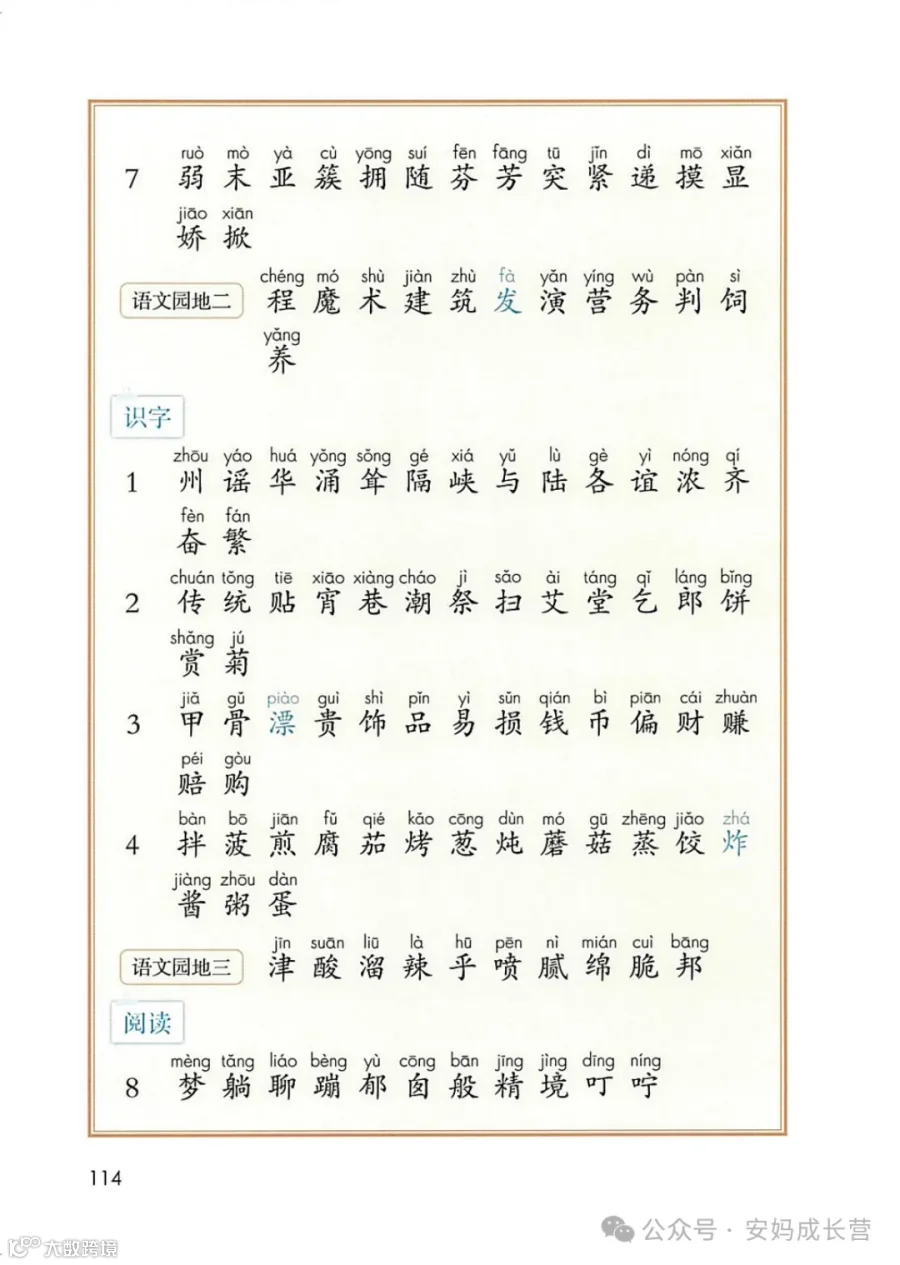 ruò mò yà cù yōng suí fēn fāng tū jǐn dì mō xiǎn
7 弱 末 亚 簇 拥 随 芬 芳 突 紧 递 摸 显
jiāo xiān
娇 掀
chéng mó shù jiàn zhù fà yǎn yíng wù pàn sì
语文园地二 程 魔 术 建 筑 发 演 营 务 判 饲
yǎng
养
识字
zhōu yáo huá yǒng sǒng gé xiá yǔ lù gè yì nóng qí
1 州 谣 华 涌 耸 隔 峡 与 陆 各 谊 浓 齐
fèn fán
奋 繁
chuán tǒng tiē xiāo xiàng cháo jì sǎo ài táng qǐ láng bǐng
2 传 统 贴 宵 巷 潮 祭 扫 艾 堂 乞 郎 饼
shǎng jú
赏 菊
jiǎ gǔ piào guì shì pǐn yì sǔn qián bì piān cái zhuàn
3 甲 骨 漂 贵 饰 品 易 损 钱 币 偏 财 赚
péi gòu
赔 购
bàn bō jiān fǔ qié kǎo cōng dùn mó gū zhēng jiǎo zhá
4 拌 菠 煎 腐 茄 烤 葱 炖 蘑 菇 蒸 饺 炸
jiàng zhōu dàn
酱 粥 蛋
jīn suān liū là hū pēn nì mián cuì bāng
语文园地三 津 酸 溜 辣 乎 喷 腻 绵 脆 邦
阅读
mèng tǎng liáo bèng yù cōng bān jīng jìng dīng níng
8 梦 躺 聊 蹦 郁 囱 般 精 境 叮 咛
114
公众号 · 安妈成长营
大数跨境